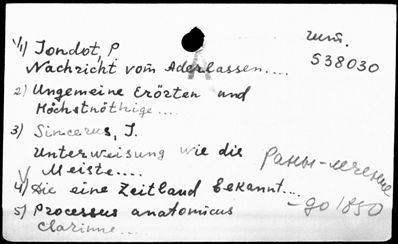 1) Jondot, P
Nachricht vom Aderlassen....
538030
2) Ungemeine Erörten und
Höchstnöthige....
3) Sincerus, J.
Unterweisung wie die
Meiste....
Раны-лечение
4) Die eine Zeitland bekannt....
- до 1850
5) Processus anatomicus
clarinne...